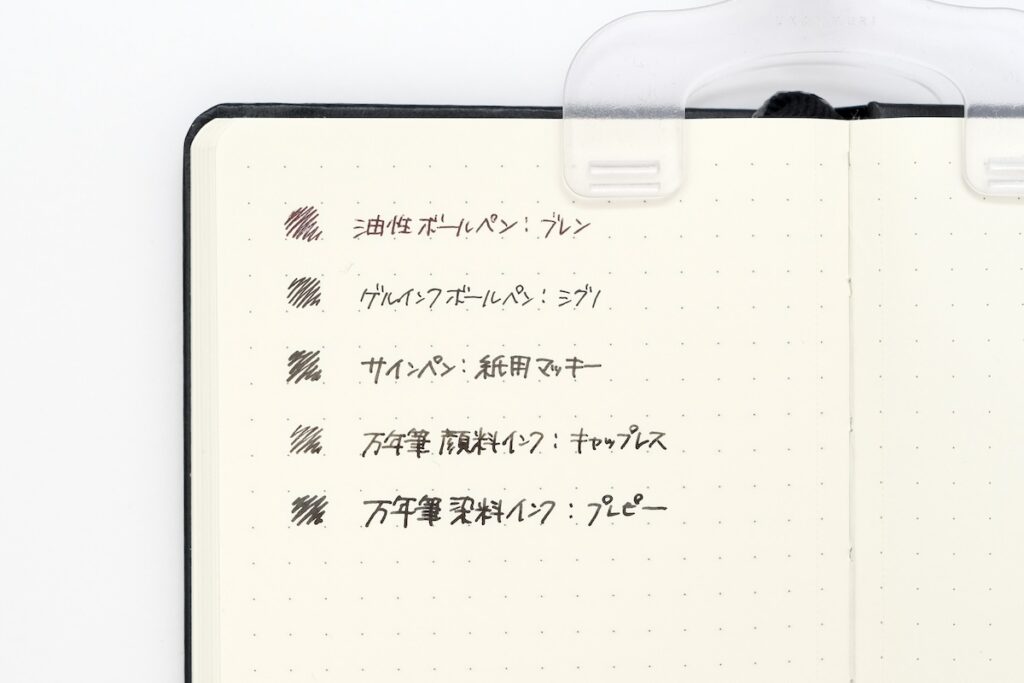 油性ボールペン：ブレン
ゲルインクボールペン：シグノ
サインペン：紙用マッキー
万年筆 顔料インク：キャップレス
万年筆 染料インク：プレピー